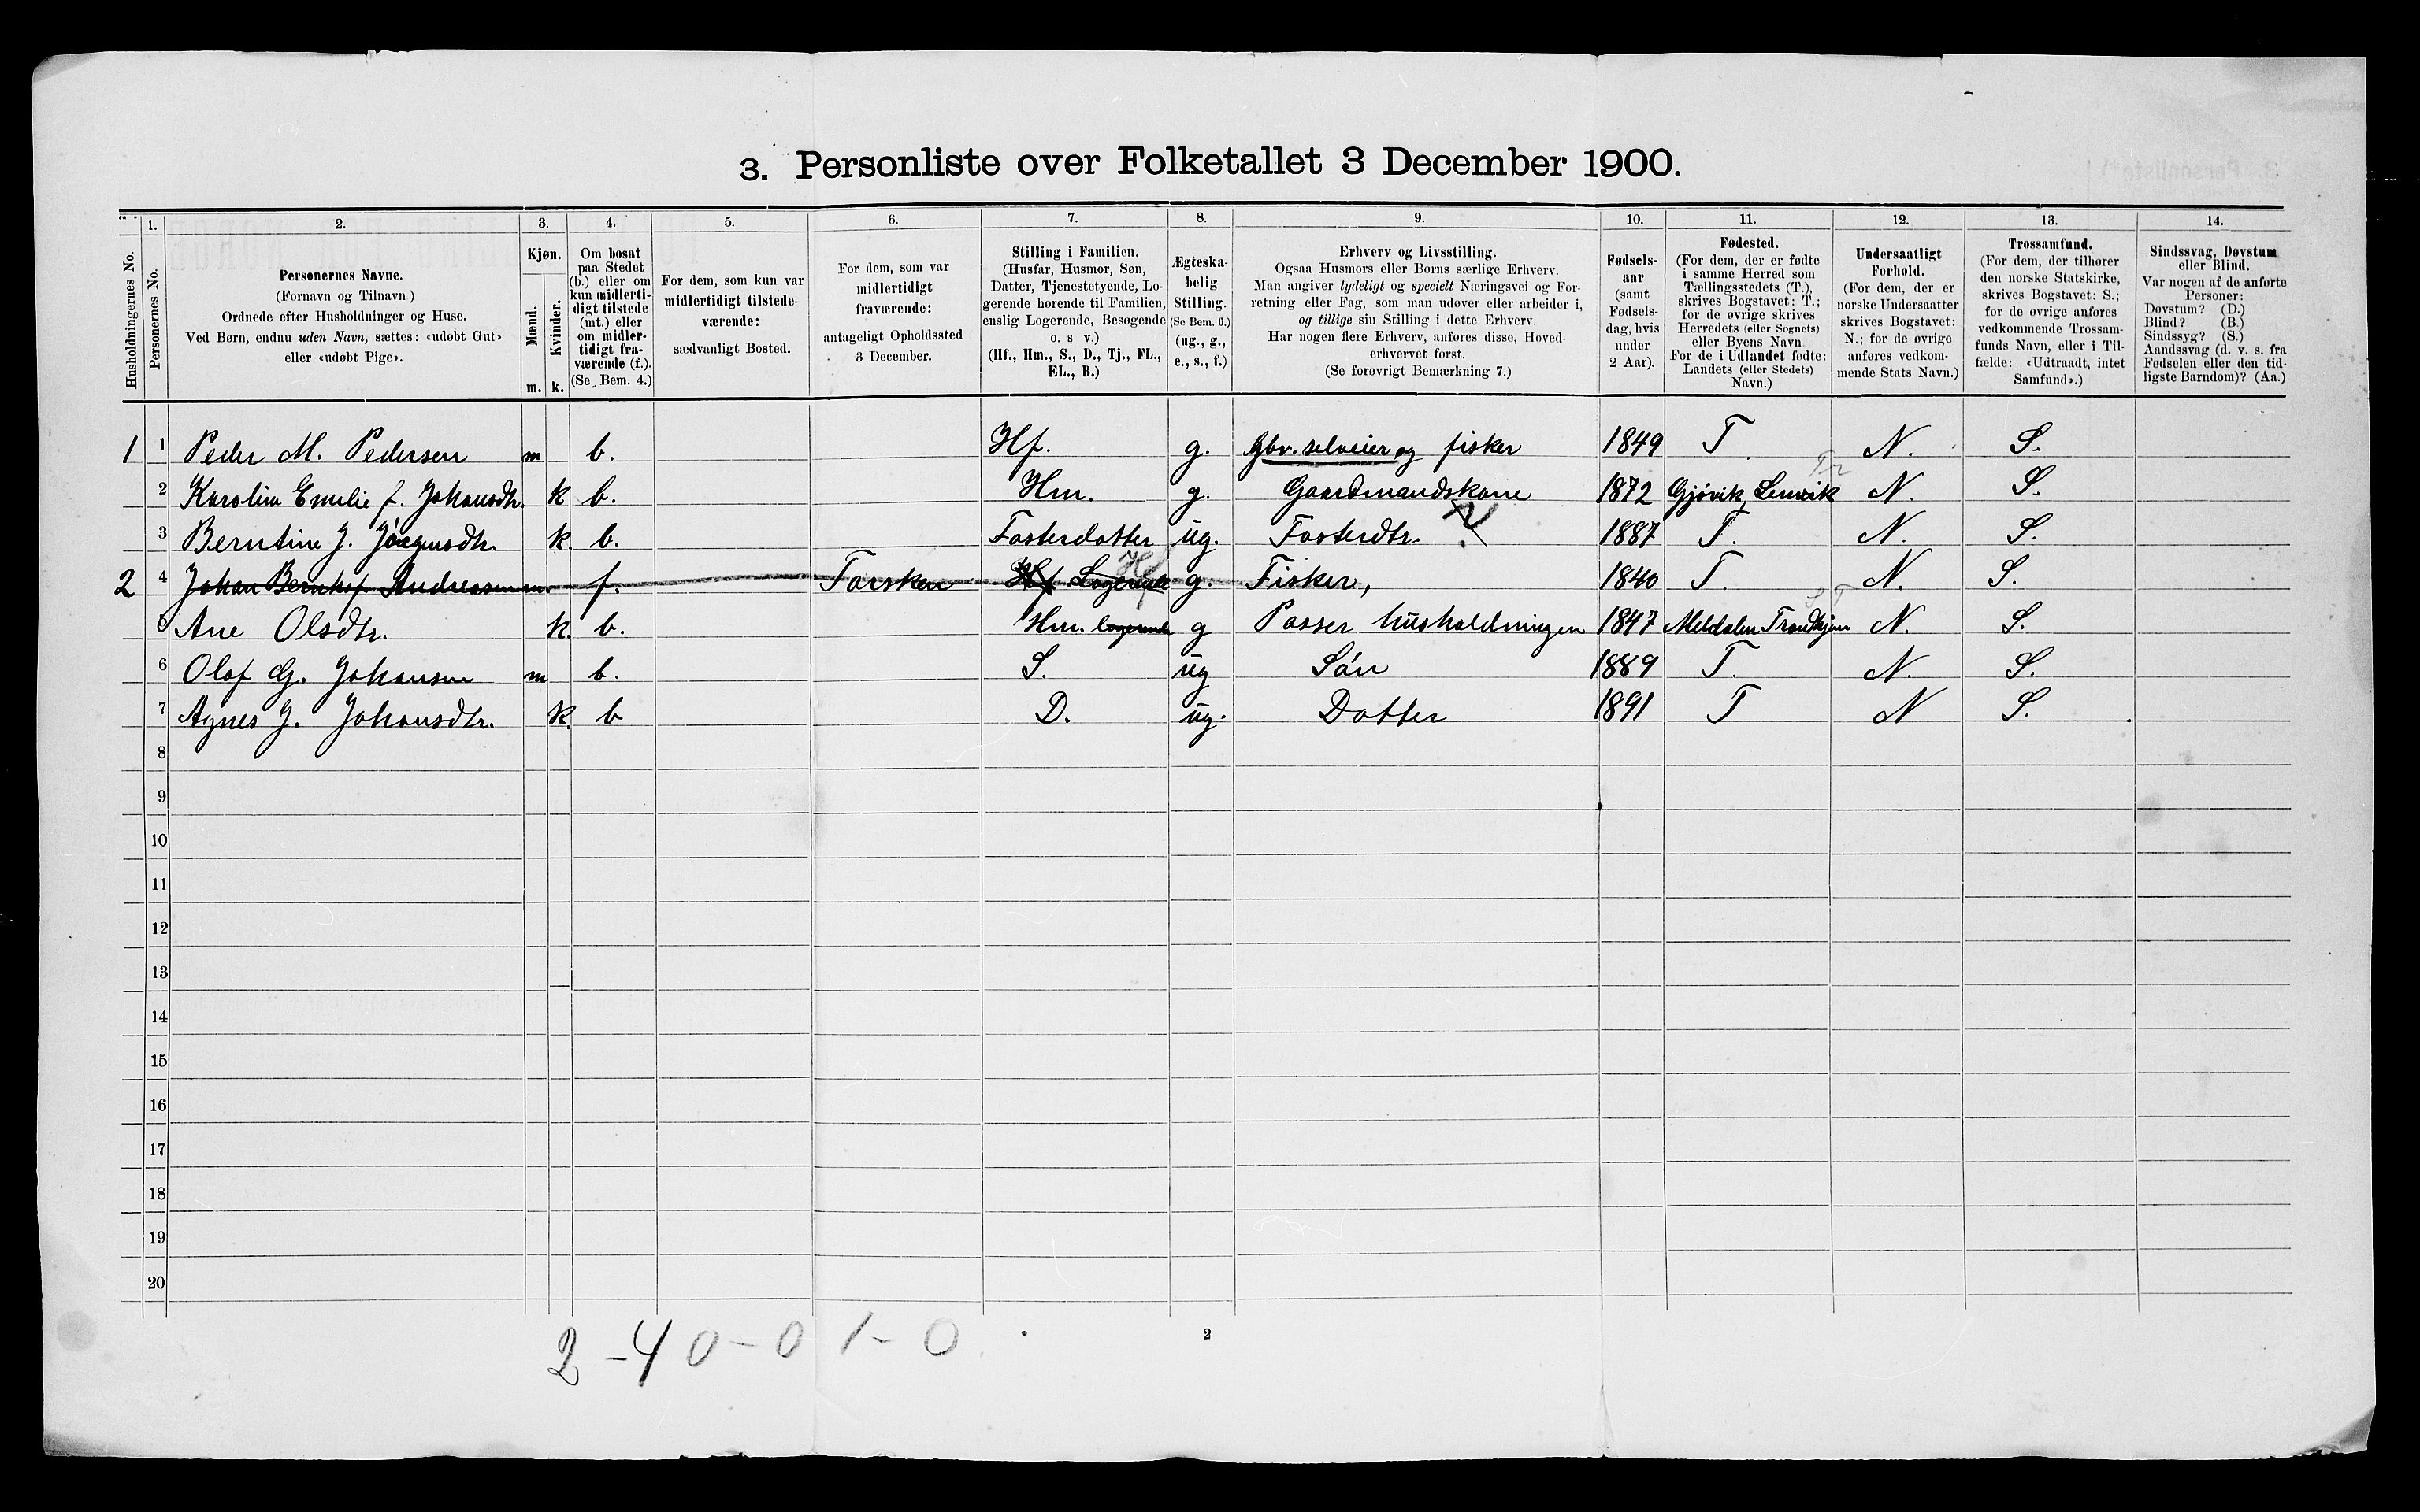 3. Personliste over Folketallet 3 December 1900.
1. 2. 3. 4. 5. 6. 7. 8. 9. 10. 11. 12. 13. 14.
Husholdningernes No.
Personernes No.
Personernes Navne.
(Fornavn og Tilnavn)
Ordnede efter Husholdninger og Huse.
Ved Børn, endnu uden Navn, sættes: «udøbt Gut»
eller «udøbt Pige».
Kjøn.
Mænd.
Kvinder.
m. k.
Om bosat
paa Stedet
(b.) eller om
kun midlerti-
digt tilstede
(mt.) eller
om midler-
tidigt fra-
værende (f.).
(Se Bem. 4.)
For dem, som kun var
midlertidigt tilstede-
værende:
sædvanligt Bosted.
For dem, som var
midlertidigt
fraværende:
antageligt Opholdssted
3 December.
Stilling i Familien.
(Husfar, Husmor, Søn,
Datter, Tjenestetyende, Lo-
gerende hørende til Familien,
enslig Logerende, Besøgende
o. s v.)
(Hf., Hm., S., D., Tj., FL.,
EL., B.)
Ægteska-
belig
Stilling.
(Se Bem. 6.)
(ug., g.,
e., s., f.)
Erhverv og Livsstilling.
Ogsaa Husmors eller Børns særlige Erhverv.
Man angiver tydeligt og specielt Næringsvei og For-
retning eller Fag, som man udøver eller arbeider i,
og tillige sin Stilling i dette Erhverv.
Har nogen flere Erhverv, anføres disse, Hoved-
erhvervet først.
(Se forøvrigt Bemærkning 7.)
Fødsels-
aar
(samt
Fødsels-
dag, hvis
under
2 Aar).
Fødested.
(For dem, der er fødte
i samme Herred som
Tællingsstedets (T.),
skrives Bogstavet: T.;
for de øvrige skrives
Herredets (eller Sognets)
eller Byens Navn.
For de i Udlandet fødte:
Landets (eller Stedets)
Navn.)
Undersaatligt
Forhold.
(For dem, der er
norske Undersaatter
skrives Bogstavet:
N.; for de øvrige
anføres vedkom-
mende Stats Navn.)
Trossamfund.
(For dem, der tilhører
den norske Statskirke,
skrives Bogstavet: S.;
for de øvrige anføres
vedkommende Trossam-
funds Navn, eller i Til-
fælde: «Udtraadt, intet
Samfund».)
Sindssvag, Døvstum
eller Blind.
Var nogen af de anførte
Personer:
Døvstum? (D.)
Blind? (B.)
Sindssyg? (S.)
Aandssvag (d. v. s. fra
Fødselen eller den tid-
ligste Barndom)? (Aa.)
1 1 Peder M. Pedersen m b. Hf. g. Gbr. selveier og fisker 1849 T. N. S.
2 Karolina Emelie f. Johansdtr. k b. Hm. g. Gaardmandskone 1872 Gjövik, Lenvik Tr N. S.
3 Berntine J. Jörgensdtr. k. b. Fosterdatter ug. Fosterdtr. 1887 T. N. S.
2 4 Johan Bernhof Andreasen m. f. Torsken Hf. Logerende Hf g. Fisker, 1840 T. N. S.
5 Ane Olsdtr. k. b. Hm. logerende g Passer husholdningen 1847 Meldalen Trondhjem N. S.
6 Olaf G. Johansen m b. S. ug Sön 1889 T. N. S.
7 Agnes J. Johansdtr. k. b D. ug. Datter 1891 T N S.
8
9
10
11
12
13
14
15
16
17
18
19
20
2 - 4 0 - 0 1 - 0
2